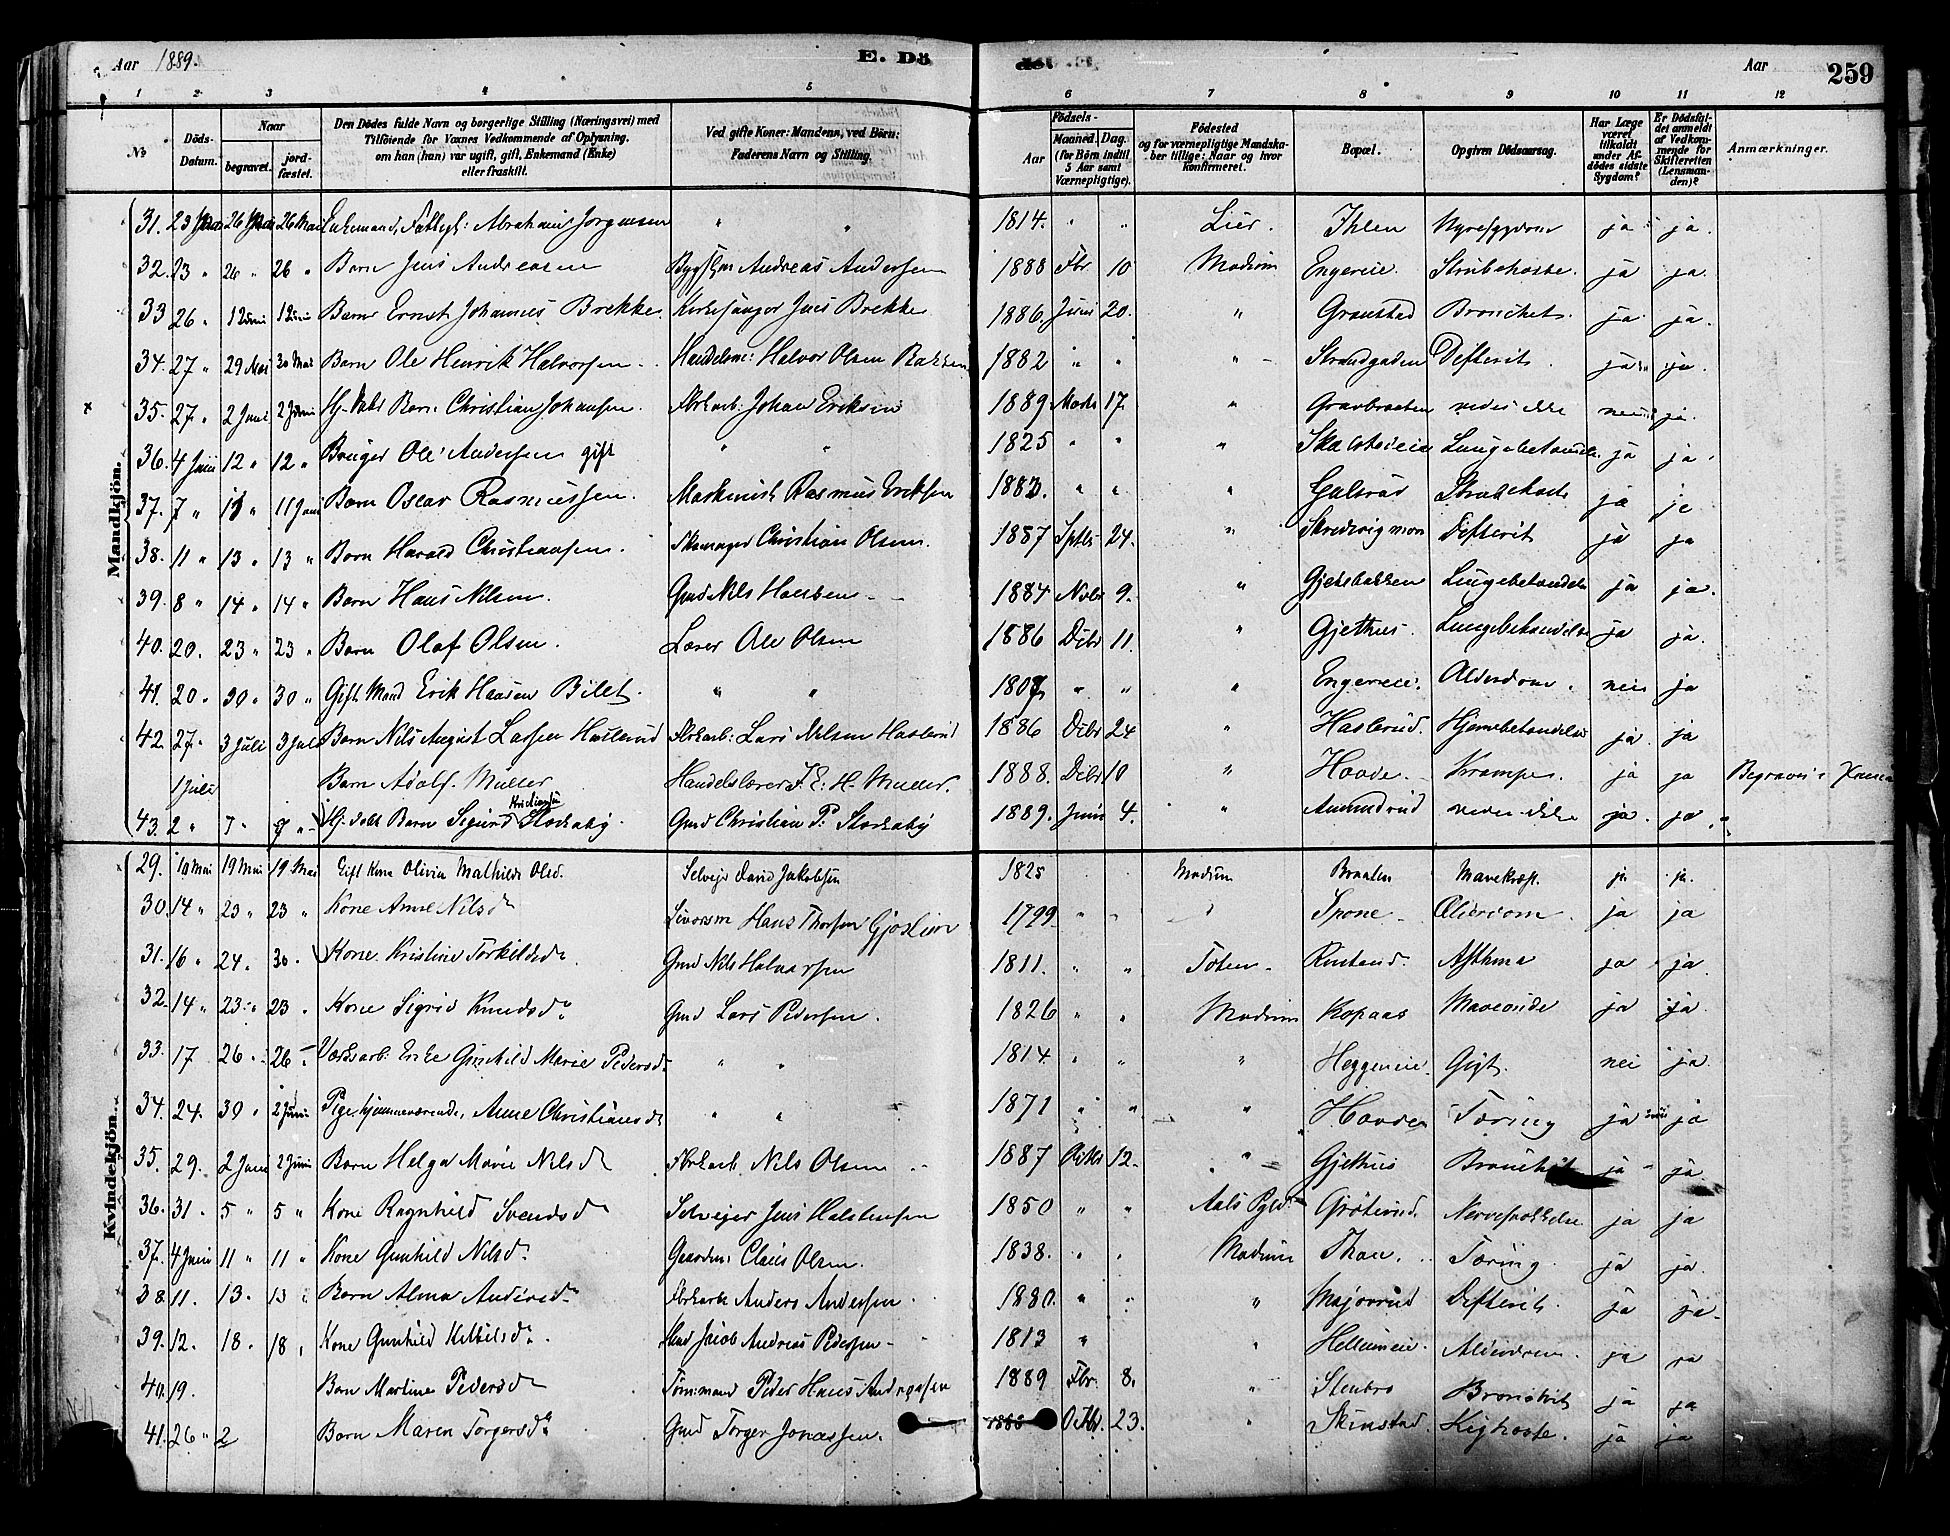 Aar 1889.
E. Dö
Aar
259
1 2 3 4 5 6 7 8 9 10 11 12
No
Döds-Datum.
Naar
begravet.
jord-fæstet.
Den Dödes fulde Navn og borgerlige Stilling (Næringsvei) med
Tilföiende for Voxnes Vedkommende af Oplysning.
om han (han) var ugift, gift, Enkemand (Enke)
eller fraskilt.
Ved gifte Koner: Mandens, ved Börn:
Faderens Navn og Stilling.
Födsels-
Aar
Maaned. Dag.
(for Börn indtil
5 Aar samt
Værnepligtige).
Födested
og for værnepligtige Mandska-
ber tillige: Naar og hvor
konfirmeret.
Bopæl.
Opgiven Dödsaarsag.
Har Læge
været
tilkaldt
under Af-
dödes sidste
Sygdom?
Er Dödsfal-
det anmeldt
af Vedkom-
mende for
Skifteretten
(Lensman-
den)?
Anmærkninger.
Mandkjön.
31. 23 Mai 26 Mai 26 Mai Enkemand, Fattigl: Abraham Jørgensen " " 1814. " " Lier. Ihlen Nyresygdom ja ja.
32. 23 " 26 " 26 " Barn Jens Andreasen Andreas Andersen 1888 Fbr 10 Modum Engereie. Strubehoste. ja ja.
33 26 " 1 Juni 1 Juni Barn Ernst Johannes Brekke. Kirkesanger Jens Brekke 1886. Juni 20. " Granstad Bronchet. ja. ja.
34. 27 " 29 Mai 30 Mai Barn Ole Henrik Halvorsen Handelsm: Halvor Olsen Bakken 1882 " " " Strandgaden Difterit ja ja.
x 35. 27 " 2 Juni 2 Juni Hj. døbt Barn Christian Johansen. Fbrkarb. Johan Eriksen 1889 Marts 17. " Gravbraaten vides ikke nei ja.
36. 4 Juni 12 " 12 " Bruger Ole Andersen gift " " 1825 " " " Lungebetændelse ja ja.
37. 7 " 11 " 11 Juni Barn Oscar Rasmussen. Maskinist Rasmus Eriksen 188 " " " Galsrud Strubehoste ja ja
38. 11 " 13 " 13 " Barn Harald Christiansen. Skomager Christian Olsen. 1887 Sptbr 24. " Skredsvigmoen Difterit ja ja
39. 8 " 14 " 14 " Barn Hans Nilsen. Gmd Nils Hansen 1884 Nvbr 9. " Gjetsbakken Lungebetændelse ja ja.
40. 20. 23 " 23 " Barn Olaf Olsen. Lærer Ole Olsen 1886 Dcbr 11. " Gjethus. Lungebetændelse ja ja.
41. 20. 30 " 30 " Gift Mand Erik Hansen Bilet. " " 1807 " " " Engereie. Alderdom. nei ja
42. 27. 3 Juli 3 Juli Barn Nils August Larsen Haslerud Fbrkarb: Lars Nilsen Haslerud 1886 Dcbr 24 " Haslerud. Hjernebetændelse ja. ja
1 Juli Barn Adolf. Müller Handelslærer F. E. H. Müller. 1888. Dcbr 10 " Hovde. Krampe. ja ja Begravet i
43. 2 " 7 " Hj. døbt Barn Sigurd Kristiansen Storkaby. Gmd Christian P. Storkaby 1889. Juni 4. " Aamundrud vides ikke ja. ja.
Kvindekjön.
29. 10 Mai 19 Mai 19 Mai Gift Kone Olivia Mathilde Olsd. Selveier David Jakobsen 1825 Modum Braaten Mavekræft. ja ja.
30. 14 " 23 " 23 " Kone Anne Nilsdr Hans Thorsen Gjøslien 1799 " " " Spone Alderdom. ja ja
31. 16 " 24. 30. Kone Kristine Torkildsdr. Gmd Nils Halvorsen 1811. " " Toten Asthma ja ja.
32. 14 " 23 " 23 " Kone Sigrid Knudsdr Gmd Lars Pedersen. 1826 " " Modum Kopaas Maveonde ja ja.
33. 17 26 " 26 " Værksarb: Enke Gunhild Marie Pedersdr " " 1814. " " " Heggeneie. Gigt. nei ja.
34. 24. 30 " 2 Juni Pige, hjemmeværende, Anne Christiansdr " " 1871 " " " Hovde Tæring ja ja
35. 29. 2 Juni 2 Juni Barn Helga Marie Nilsdr Fbrkarb. Nils Olsen 1887 Oktbr 12. " Gjethus Bronchit ja ja
36. 31 " 5 " 5 " Kone Ragnhild Svendsdr Selveier Jens Halstensen 1850 " " Aals Pgld. Grøterud. ja ja
37. 4 Juni 11 " 11 " Kone Gunhild Nilsdr. Gaardm: Claus Olsen. 1838. " " Modum Thon. Tæring. ja ja.
38. 11. 13. 13 " Barn Alma Andersdr. Fbrkarb Anders Andersen 1880. " " " Difterit. ja ja.
39. 12. 18. 18 " Kone Gunhild Kittilsdr. Gmd Jacob Andreas Pedersen 1813 " " Hellumeie. Alderdom. ja ja
40. 19. Barn Martine Pedersdr Tømmermand Peder Hans Andreassen 1889 Fbr. 8. " Stenbro Bronchit ja ja
41. 26 " 2 Barn Maren Torgersdr Gmd Torger Jonassen. 1888 Oktbr. 23. " Skinstad Kighoste. ja ja